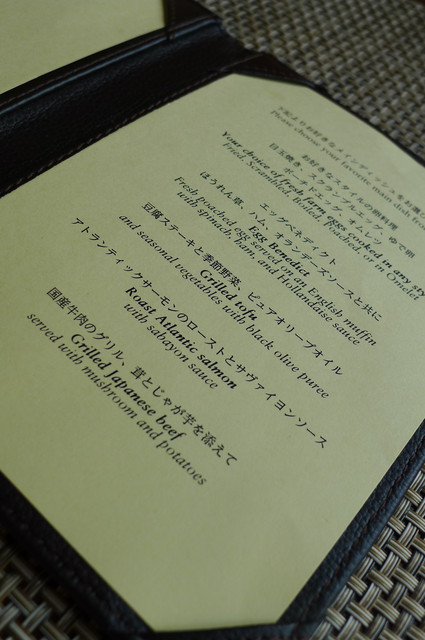 下記よりお好きなメインディッシュをお選び
Please choose your favorite main dish from
お好きなスタイルの卵料理
目玉焼き、スクランブルエッグ、ゆで卵
ポーチドエッグ、オムレツ
Your choice of fresh farm eggs cooked in any sty
Fried, Scrambled, Boiled, Poached, or an Omelet
エッグベネディクト
ほうれん草、ハム、オランデーズソースと共に
Egg Benedict
Fresh poached egg served on an English muffin
with spinach, ham, and Hollandaise sauce
豆腐ステーキと季節野菜、ピュアオリーブオイル
Grilled tofu
and seasonal vegetables with black olive puree
アトランティックサーモンのローストとサヴァイヨンソース
Roast Atlantic salmon
with sabayon sauce
国産牛肉のグリル、茸とじゃが芋を添えて
Grilled Japanese beef
served with mushroom and potatoes